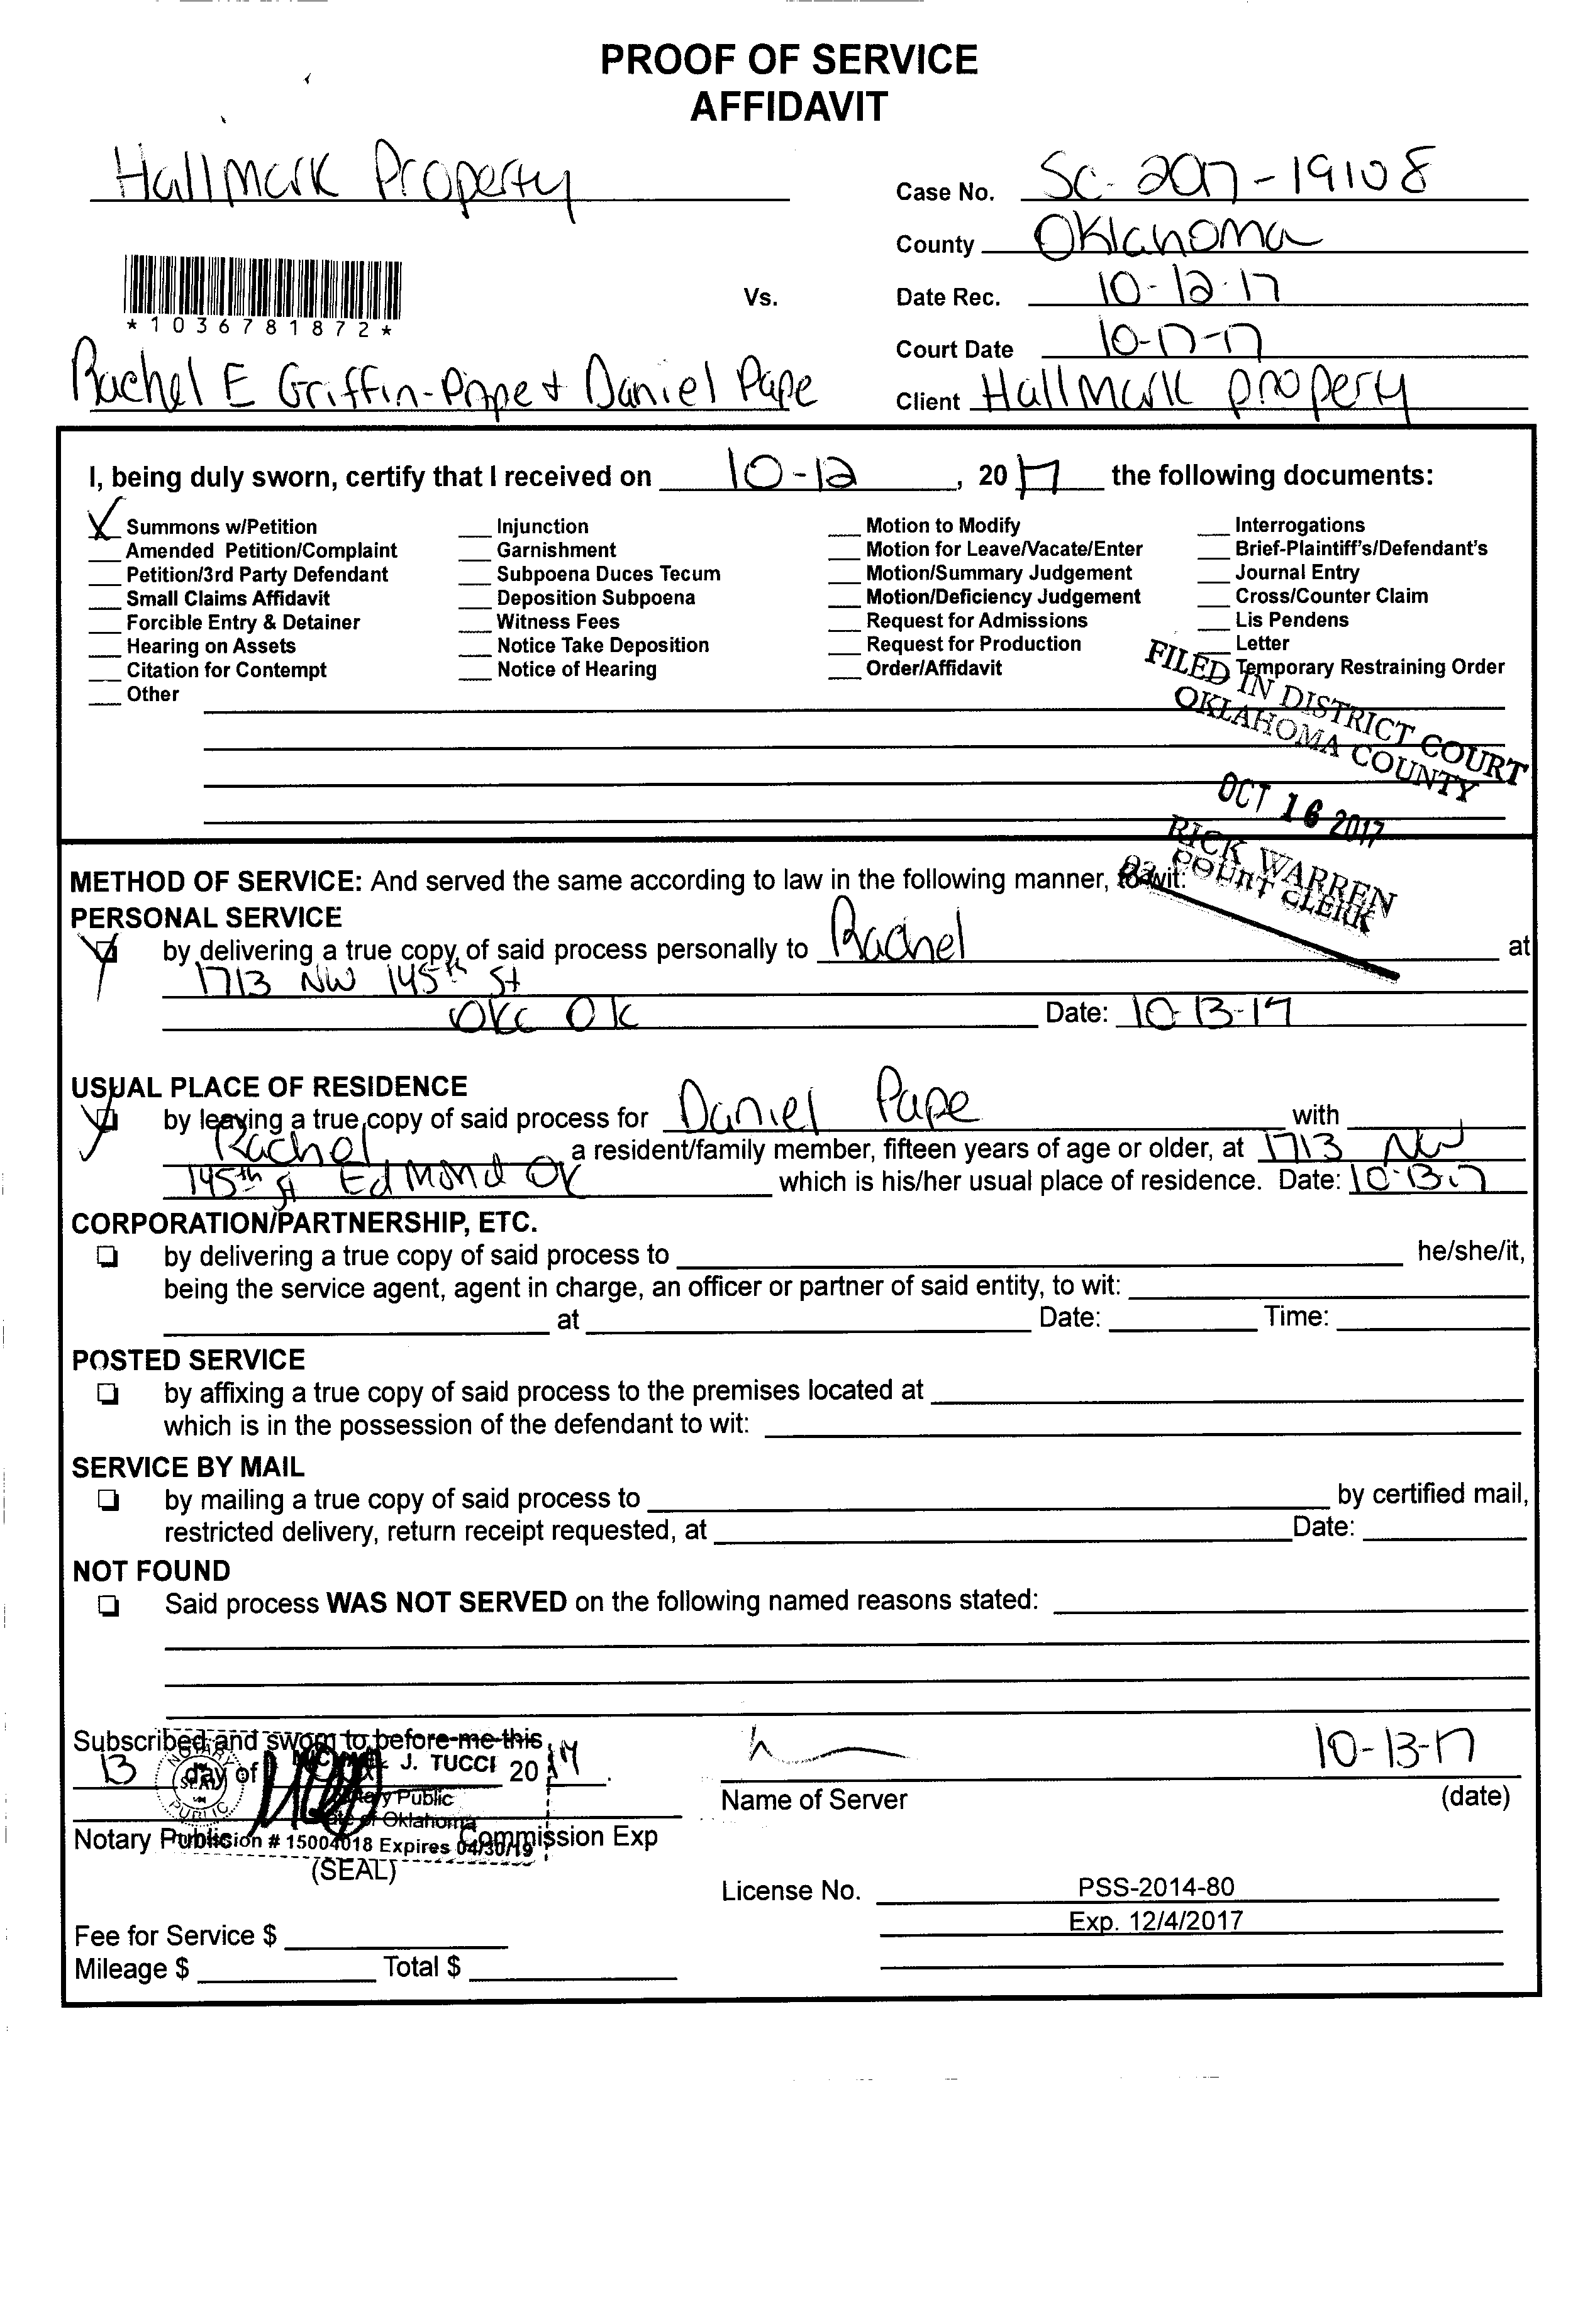 PROOF OF SERVICE
AFFIDAVIT
Hallmark Property
Case No. SC-2017-19108
County Oklahoma
*1036781872*
Vs.
Date Rec. 10-12-17
Court Date 10-17-17
Rachel E Griffin-Pape & Daniel Pape
Client Hallmark Propery
I, being duly sworn, certify that I received on 10-12, 2017 the following documents:
X Summons w/Petition
Amended Petition/Complaint
Petition/3rd Party Defendant
Small Claims Affidavit
Forcible Entry & Detainer
Hearing on Assets
Citation for Contempt
Other
Injunction
Garnishment
Subpoena Duces Tecum
Deposition Subpoena
Witness Fees
Notice Take Deposition
Notice of Hearing
Motion to Modify
Motion for Leave/Vacate/Enter
Motion/Summary Judgement
Motion/Deficiency Judgement
Request for Admissions
Request for Production
Order/Affidavit
Interrogations
Brief-Plaintiff's/Defendant's
Journal Entry
Cross/Counter Claim
Lis Pendens
Letter
Temporary Restraining Order
FILED IN DISTRICT COURT
OKLAHOMA COUNTY
OCT 16 2017
RICK WARREN
COURT CLERK
METHOD OF SERVICE: And served the same according to law in the following manner, to wit:
PERSONAL SERVICE
by delivering a true copy of said process personally to Rachel at
1713 NW 145th St
OKC OK Date: 10-13-17
USUAL PLACE OF RESIDENCE
by leaving a true copy of said process for Daniel Pape with
Rachel a resident/family member, fifteen years of age or older, at 1713 NW
145th St Edmond OK which is his/her usual place of residence. Date: 10-13-17
CORPORATION/PARTNERSHIP, ETC.
by delivering a true copy of said process to he/she/it,
being the service agent, agent in charge, an officer or partner of said entity, to wit:
at Date: Time:
POSTED SERVICE
by affixing a true copy of said process to the premises located at
which is in the possession of the defendant to wit:
SERVICE BY MAIL
by mailing a true copy of said process to by certified mail,
restricted delivery, return receipt requested, at Date:
NOT FOUND
Said process WAS NOT SERVED on the following named reasons stated:
Subscribed and sworn to before me this
13 day of 2017
J. TUCCI
NOTARY PUBLIC SEAL
Notary Public
State of Oklahoma
Commission # 15004018 Expires 04/30/19
Notary Public Commission Exp
(SEAL)
10-13-17
Name of Server (date)
License No. PSS-2014-80
Exp. 12/4/2017
Fee for Service $
Mileage $ Total $